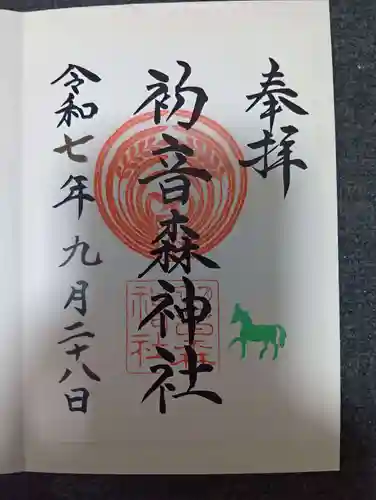 奉拝
初音森神社
初音森神社
令和七年九月二十八日